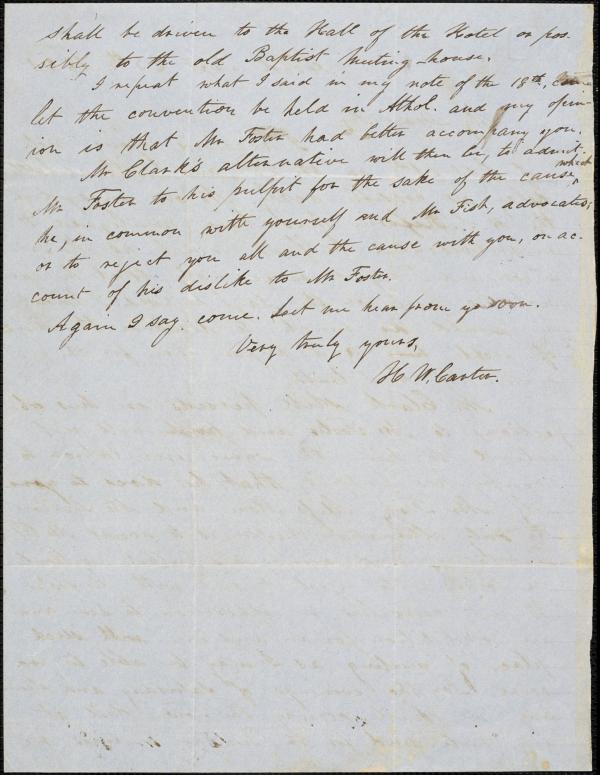 shall be driven to the Hall of the Hotel or pos-
sibly to the old Baptist Meeting-house.
I repeat what I said in my note of the 18th,
let the convention be held in Athol. and my opin-
ion is that Mr Foster had better accompany you.
Mr Clark's alternative will then be, to admit
Mr Foster to his pulpit for the sake of the cause, which
he, in common with yourself and Mr Fish, advocates;
or to reject you all and the cause with you, on ac-
count of his dislike to Mr Foster.
Again I say. come. Let me hear from yo soon.
Very truly yours,
H W. Carter.